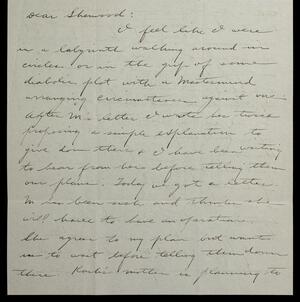 Dear Sherwood:
I feel like I were
in a labyrinth walking around in
circles or in the grip of some
diabolic plot with a Mastermind
arranging circumstances against me.
After M's letter I wrote her twice
proposing a simple explanation to
give down there & I have been waiting
to hear from her before telling them
our plans. Today we got a letter.
M has been sick and thinks she
will have to have an operation.
She agrees to my plan but wants
us to wait before telling them down
there. mother is planning to